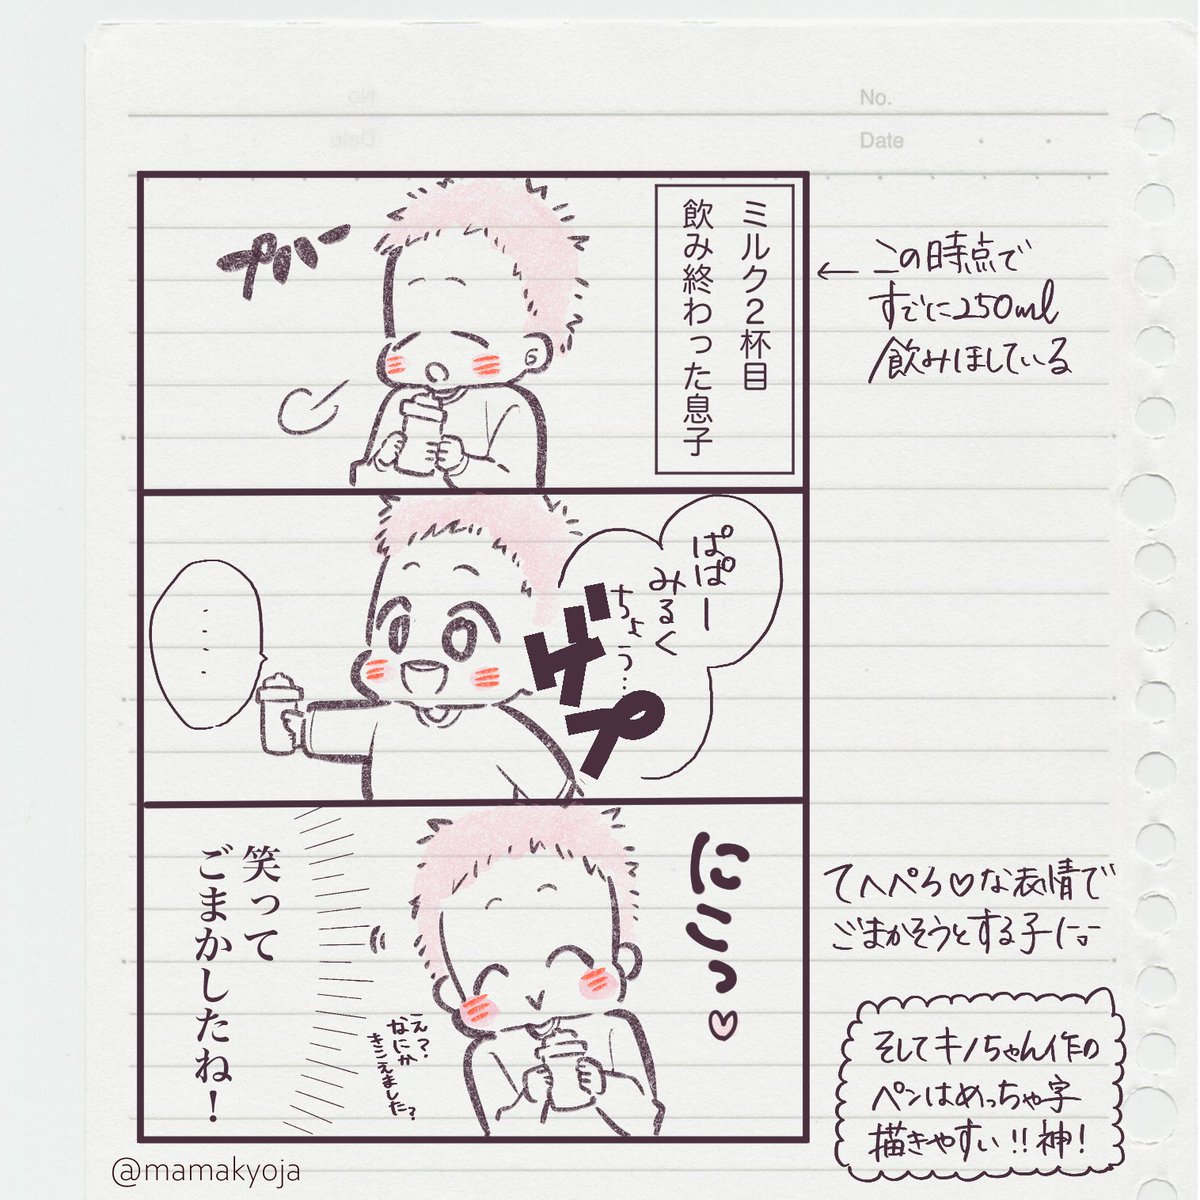 No.
Date
ミルク2杯目
飲み終わった息子
プハー
この時点で
すでに250ml
飲みほしている
ぱぱー
みるく
ちょう…
ゲプ
・・・・
にこっ♡
えへ?
なにか
きこえました?
笑って
ごまかしたね!
てへぺろ♡な表情で
ごまかそうとする子に…
そしてキノちゃん作の
ペンはめっちゃ字
描きやすい!!神!
@mamakyoja